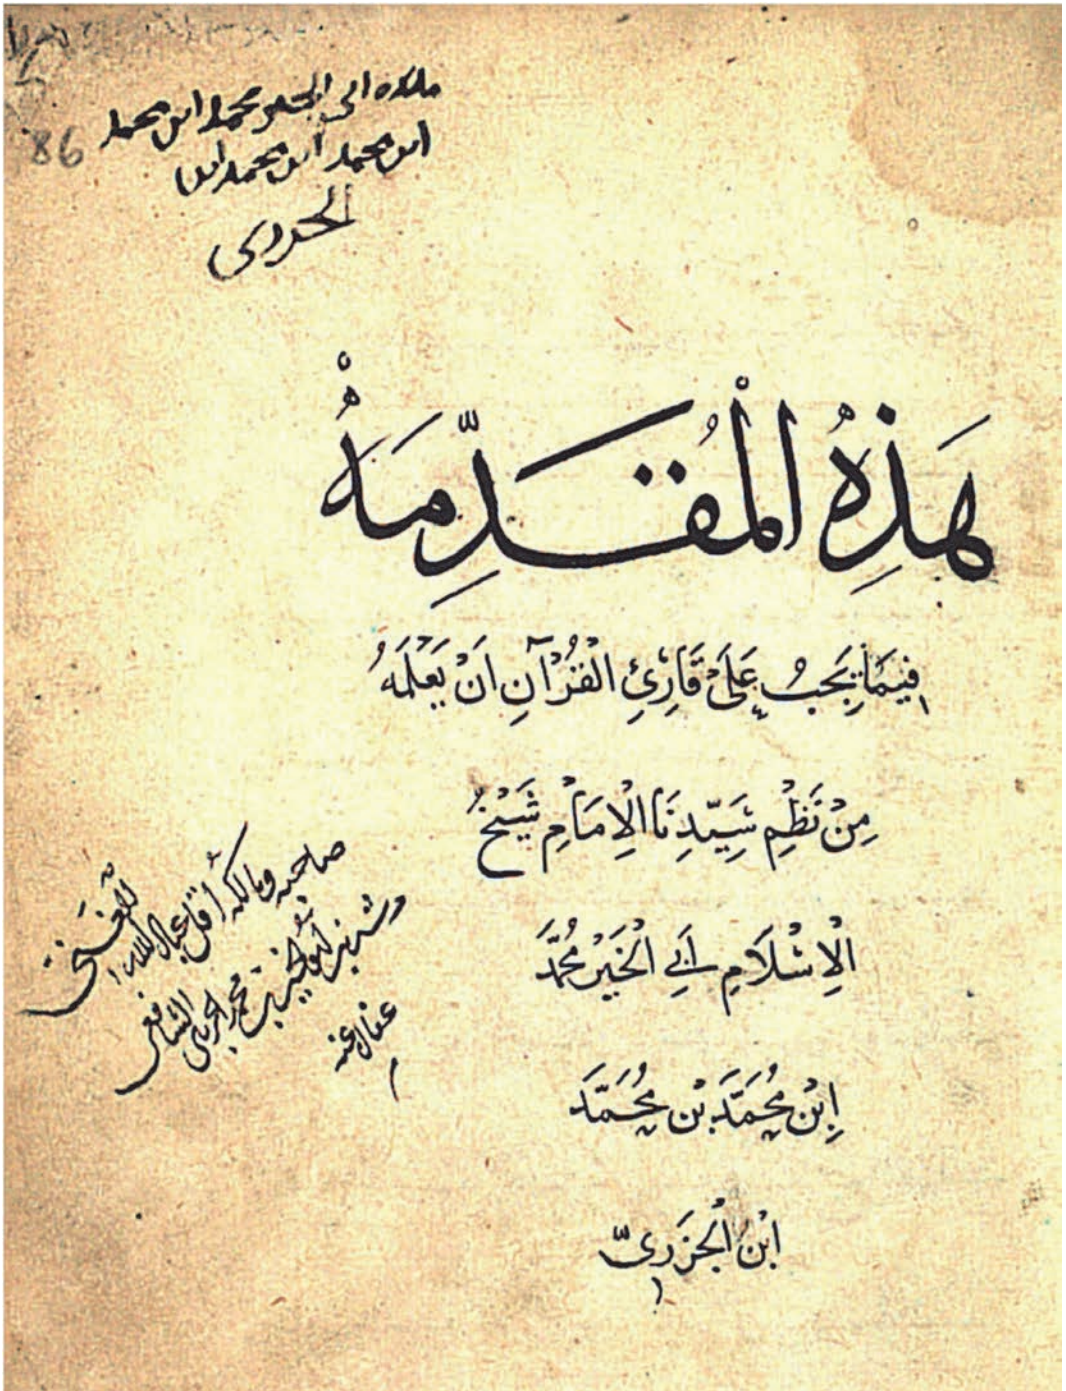 86
ابى الخير محمد ابن محمد
ابن محمد ابن محمد ابن
الجزرى
هَذِهِ الْمُقَدِّمَةُ
فِيمَا يَجِبُ عَلَى قَارِئِ الْقُرْآنِ اَنْ يَعْلَمَهُ
مِنْ نَظْمِ سَيِّدِنَا الْاِمَامِ شَيْخُ
الْاِسْلَامِ اَبِي الْخَيْرْ مُحَمَّدَ
اِبْن مُحَمَّدَ بْن مُحَمَّدَ
ابْن الْجَزَرِىّ
صاحبه ومالكه أقل عباد الله
محمد الشافعى
عفا الله عنه